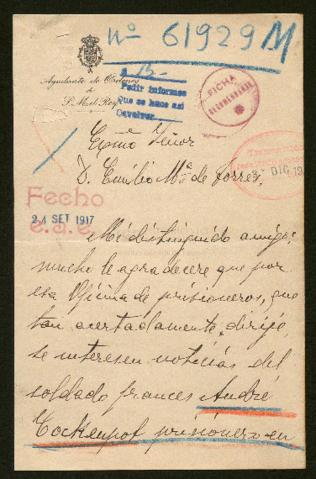 Nº 61929 M
Ayudante de Ordenes
de
S. M. el Rey
B
Pedir informes
Que se hace así
Devolver
FICHA
Exmo Señor
D. Emilio Mª de Torres,
DIC 19
Fecho
24 SET 1917
Mi distinguido amigo:
mucho le agradeceré que por
esa Oficina de prisioneros, que
tan acertadamente dirije,
se interesen noticias del
soldado frances André
prisionero en